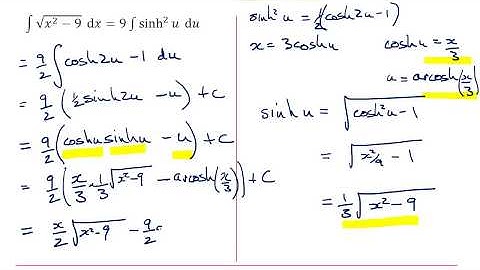 ∫ √(x² − 9) dx = 9 ∫ sinh² u du
= 9/2 ∫ cosh2u − 1 du
= 9/2 (½ sinh2u − u) + C
= 9/2 (coshu sinhu − u) + C
= 9/2 (x/3 · 1/3 √(x²−9) − arcosh(x/3)) + C
= x/2 √(x²−9) − 9/2
sinh² u = ½(cosh2u − 1)
x = 3coshu coshu = x/3
u = arcosh(x/3)
sinhu = √(cosh²u − 1)
= √(x²/9 − 1)
= 1/3 √(x² − 9)